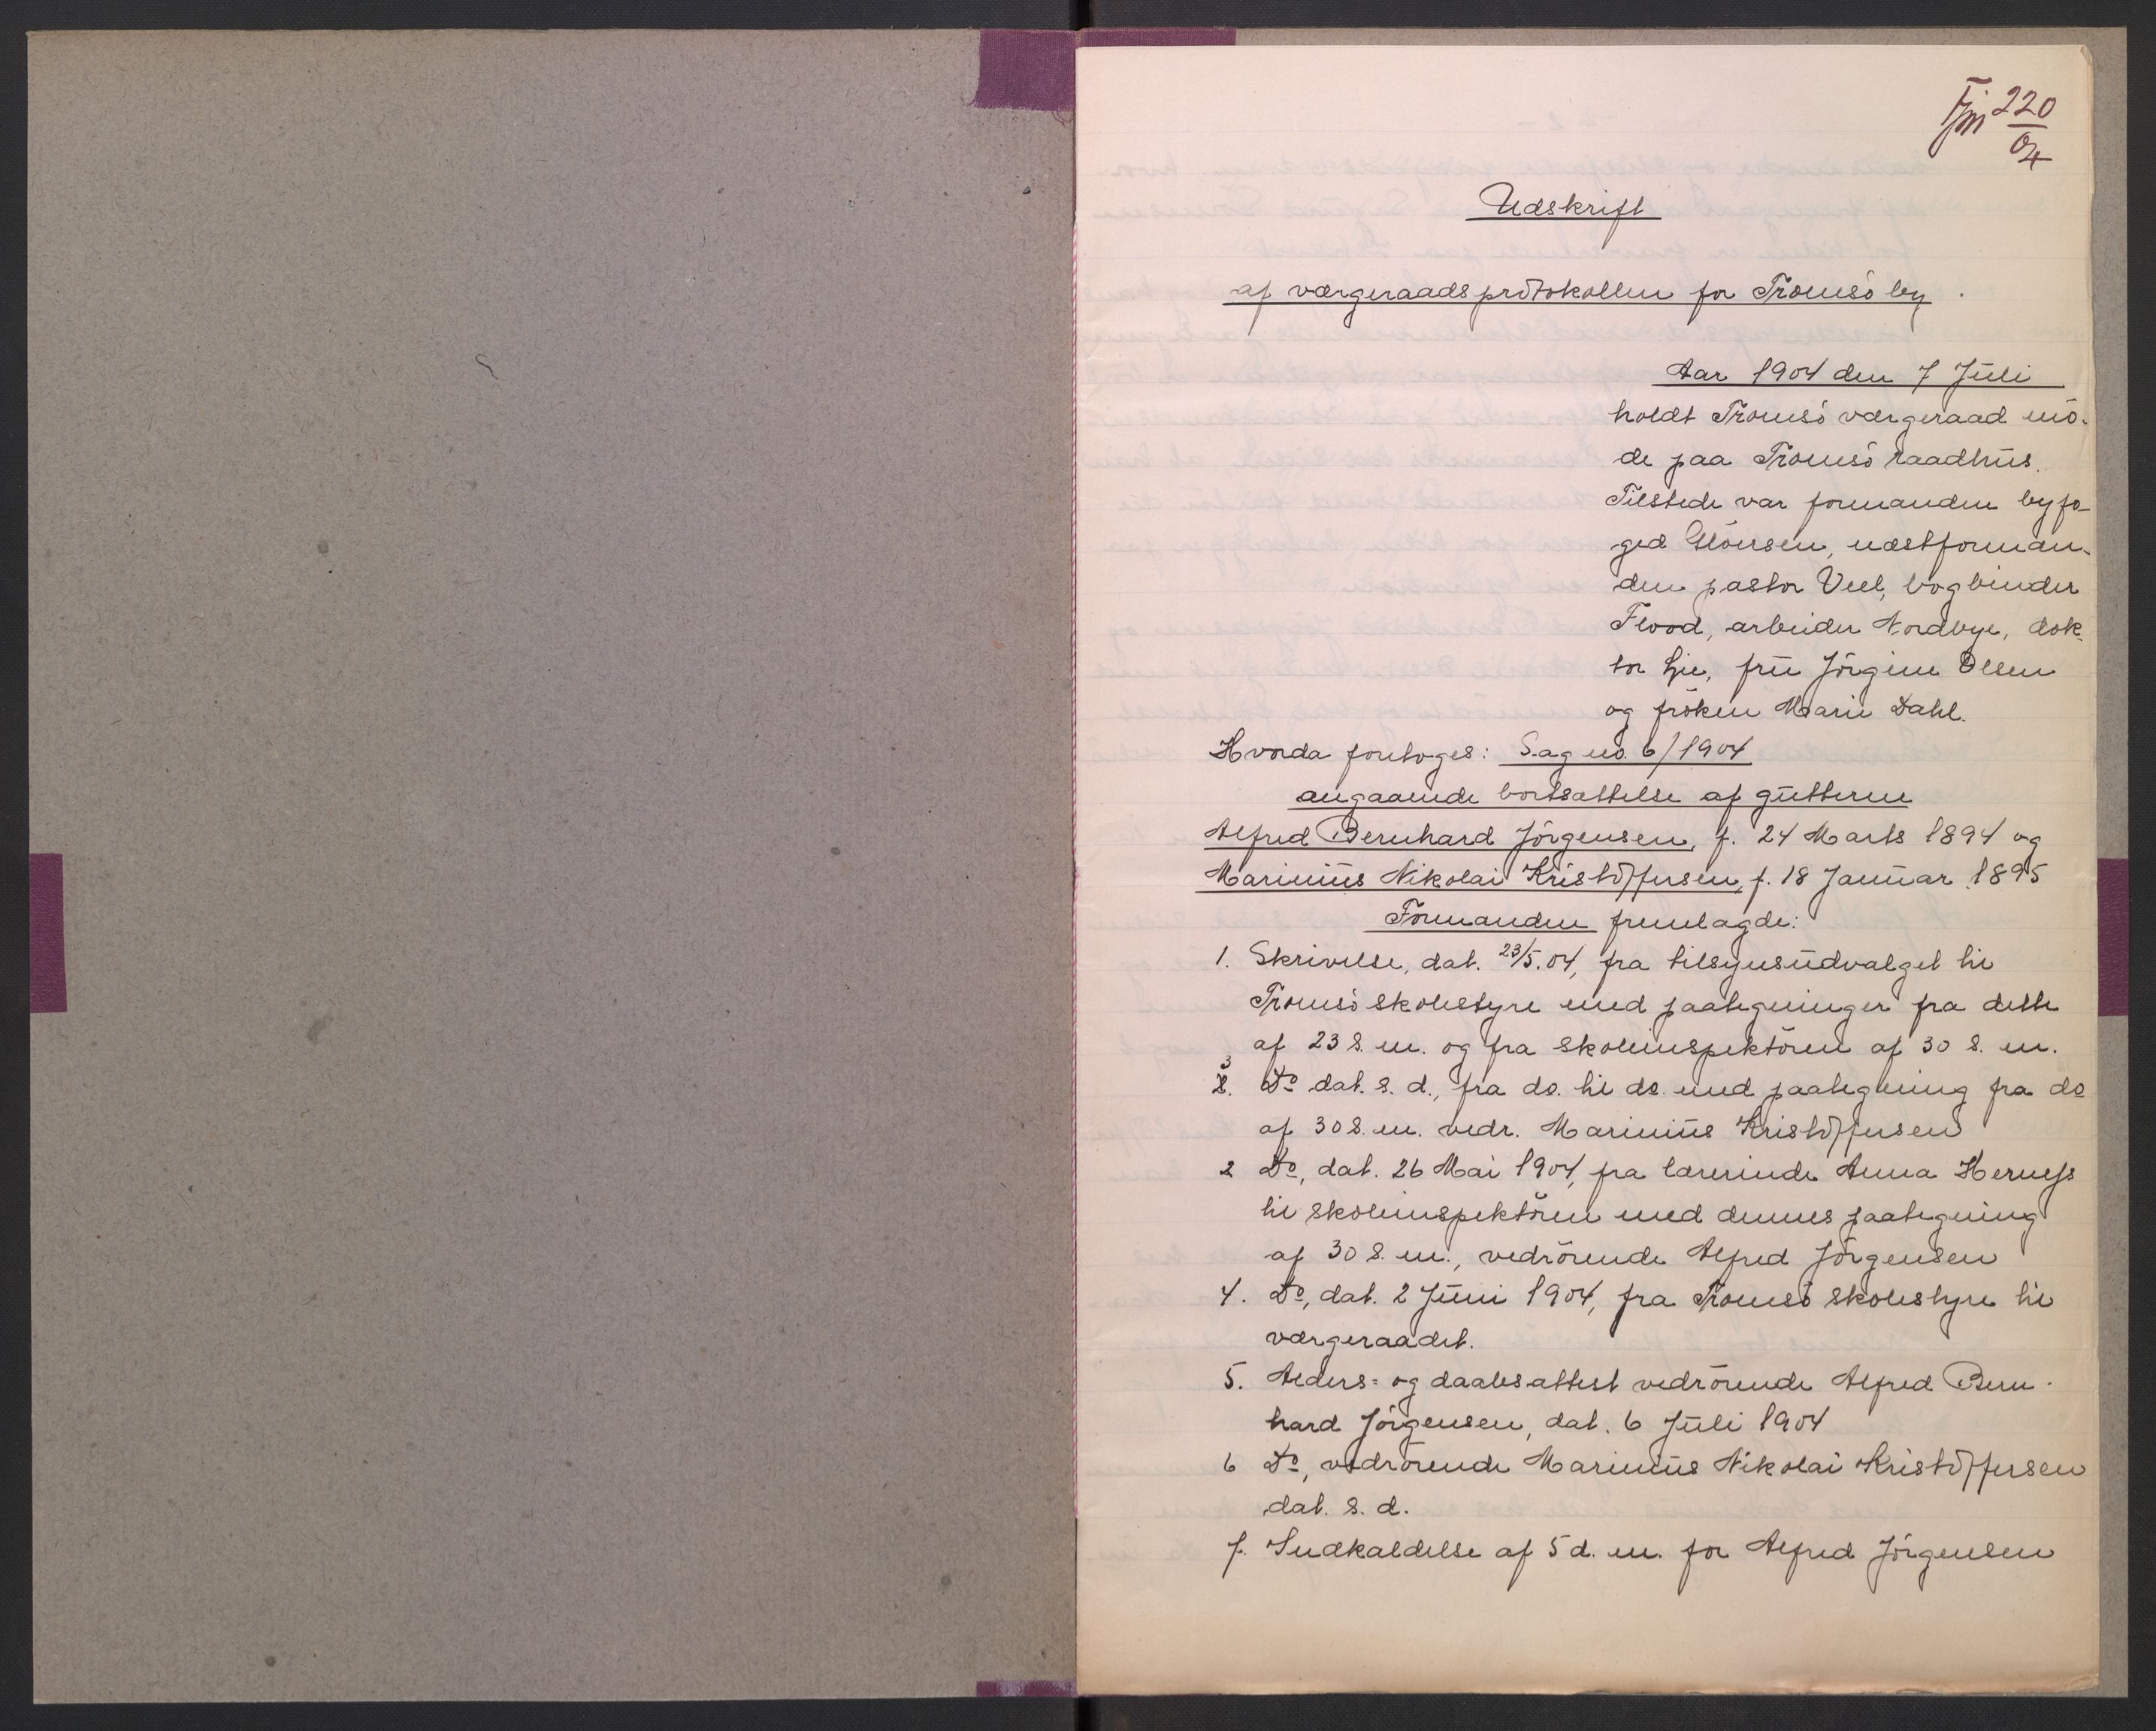 220
04
Udskrift
af værgeraadsprotokollen for Tromsö by.
Aar 1904 den 7 Juli
holdt Tromsö værgeraad mö-
de paa Tromsö raadhus.
Tilstede var formanden byfo-
ged Glörsen, næstforman-
den pastor Veel, bogbinder
Flood, arbeider Nordbye, dok-
tor Lie, fru Jörgine Olsen
og fröken Marie Dahl.
Hvorda foretoges: Sag no. 6/1904
angaaende bortsættelse af gutterne
Alfred Bernhard Jörgensen, f. 24 Marts 1894 og
Marinius Nikolai Kristoffersen, f. 18 Januar 1895
Formanden fremlagde:
1. Skrivelse, dat. 23/5.04, fra tilsynsudvalget til
Tromsö skolestyre med paategninger fra dette
af 23 s. m. og fra skoleinspektören af 30 s. m.
3. Do dat. s. d., fra do. til do. med paategning fra do
af 30 s. m. vedr. Marinius Kristoffersen
2 Do, dat. 26 Mai 1904, fra lærerinde Anna Herness
til skoleinspektören med dennes paategning
af 30 s. m., vedrörende Alfred Jörgensen
4. Do, dat. 2 Juni 1904, fra Tromsö skolestyre til
værgeraadet.
5. Alders- og daabsattest vedrörende Alfred Bern-
hard Jörgensen, dat. 6 Juli 1904
6 Do, vedrörende Marinius Nikolai Kristoffersen
dat. s. d.
7. Indkaldelse af 5 d. m. for Alfred Jörgensen